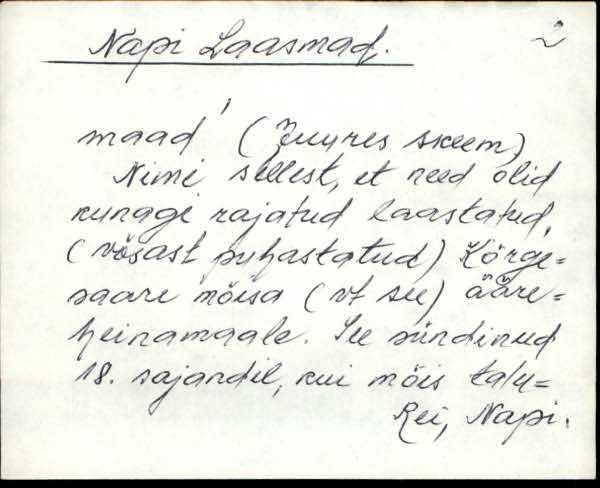 Napi Laasmad.
2
maad' (Juures skeem)
Nimi sellest, et need olid
kunagi rajatud laastatud,
(võsast puhastatud) Kõrge=
saare mõisa (vt see) ääre=
heinamaale. See sündinud
18. sajandil, kui mõis talu=
Rei, Napi.